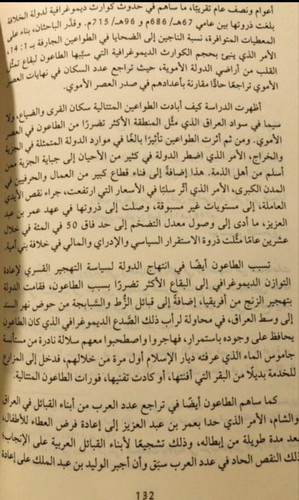 أعوام ونصف عام تقريبًا، ما ساهم في حدوث كوارث ديموغرافية لدولة الخلافة
بلغت ذروتها بين عامي 67هـ/686م و96هـ/715م. وقدّر الباحثان، بناء على
المعطيات المتوافرة، نسبة الناجين إلى الضحايا في الطواعين الجارفة بـ 1: 14،
الأمر الذي ينبي بحجم الكوارث الديموغرافية التي سبّبها الطاعون لبقاع تمثّل
القلب من أراضي الدولة الأموية، حيث تراجع عدد السكان في نهايات العصر
الأموي تراجعًا حادًّا مقارنة بأعدادهم في صدر العصر الأموي.
أظهرت الدراسة كيف أبادت الطواعين المتتالية سكان القرى والضياع، ولا
سيما في سواد العراق الذي مثّل المنطقة الأكثر تضررًا من الطاعون في العصر
الأموي. ومن ثم أثرت الطواعين تأثيرًا بالغًا في موارد الدولة المتمثلة في الجزية
والخراج، الأمر الذي اضطر الدولة في كثير من الأحيان إلى جباية الجزية ممن
أسلم من أهل الذمة. هذا إضافةً إلى فناء قطاع كبير من العمال والحرفيين في
المدن الكبرى، الأمر الذي أثّر سلبًا في الأسعار التي ارتفعت، جراء نقص الأيدي
العاملة، إلى مستويات غير مسبوقة، وصلت إلى ذروتها في عهد عمر بن عبد
العزيز، ما أدى إلى وصول معدل التضخم إلى حد فاق 50 في المئة في خلال
عشرين عامًا مثّلت ذروة الاستقرار السياسي والإدراي والمالي في خلافة بني أمية.
تسبب الطاعون أيضًا في انتهاج الدولة لسياسة التهجير القسري لإعادة
التوازن الديموغرافي إلى البقاع الأكثر تضررًا بسبب الطاعون، فقامت الدولة
بتهجير الزنج من أفريقيا، إضافةً إلى قبائل الزُّط والسَّيابجة من حوض نهر السند
إلى وسط العراق، في محاولة لرأب ذلك الصَّدع الديموغرافي الذي كان الطاعون
يحافظ على وجوده باستمرار، فهاجروا واصطحبوا معهم سلالة نادرة من مستأنسة
جاموس الماء الذي عرفته ديار الإسلام أول مرة من خلالهم، فدخل إلى المزارع
للخدمة بديلًا من البقر التي أفنتها، أو كادت تفنيها، فورات الطاعون المتتالية.
كما ساهم الطاعون أيضًا في تراجع عدد العرب من أبناء القبائل في العراق
والشام، الأمر الذي حدا بعمر بن عبد العزيز إلى إعادة فرض العطاء للأطفال،
بعد مدة طويلة من إبطاله، وذلك تشجيعًا لأبناء القبائل العربية على الإنجاب.
ذلك النقص الحاد في عدد العرب سبَق وأن أجبر الوليد بن عبد الملك على إعادة
132